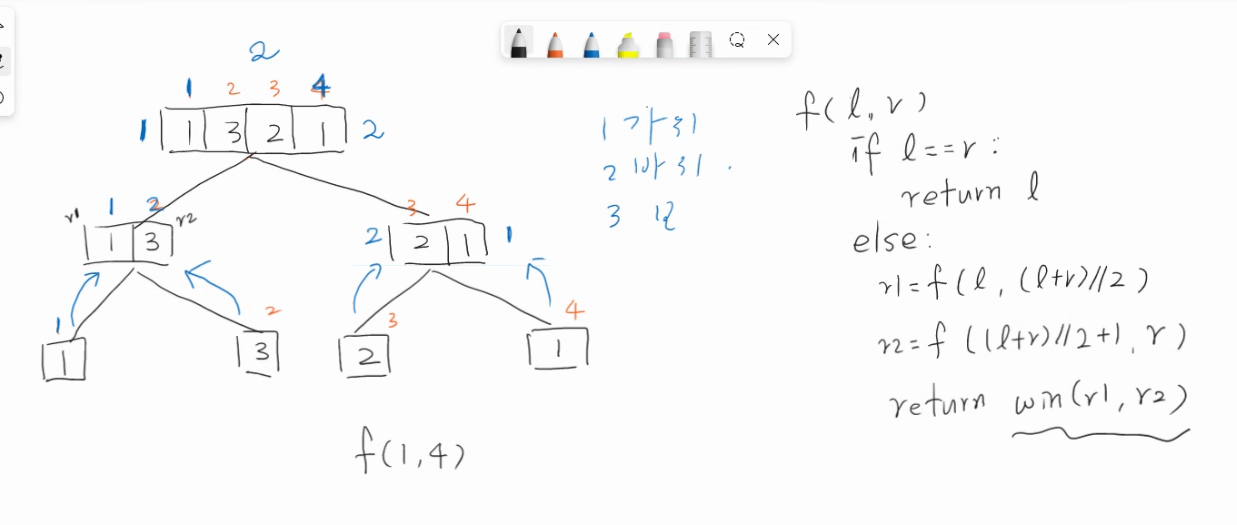 2
1 2 3 4
1 1 3 2 1 2
1 2
r1 1 3 r2
3 4
2 2 1 1
1 2 3 4
1 3 2 1
f(1,4)
1 가위
2 바위
3 보
f(l, r)
if l==r :
return l
else:
r1=f(l, (l+r)//2)
r2=f((l+r)//2+1, r)
return win(r1, r2)